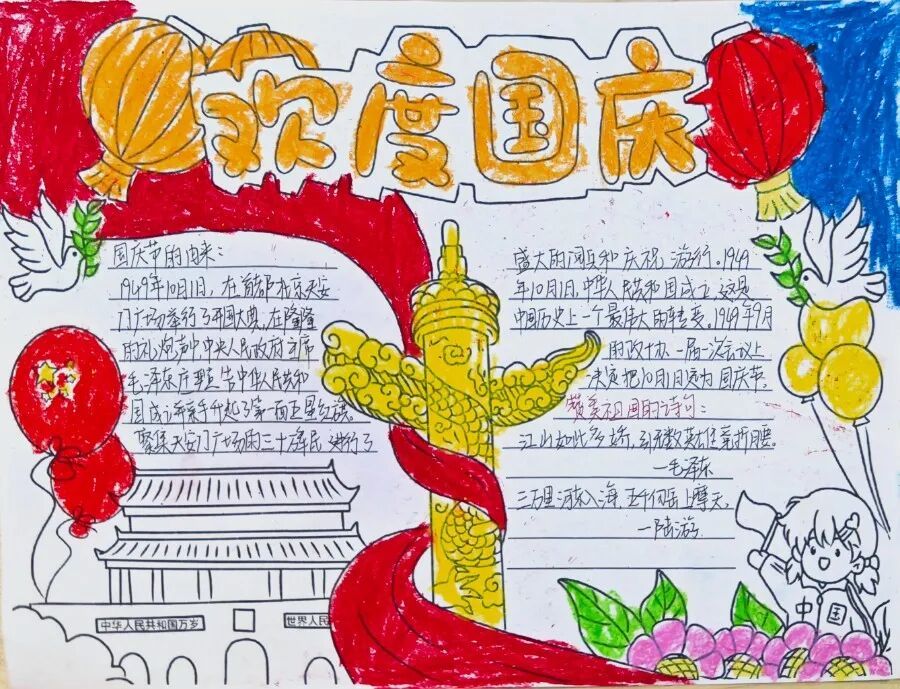 欢度国庆
国庆节的由来:
1949年10月1日,在首都北京天安
门广场举行了开国大典,在隆隆
的礼炮声中,中央人民政府主席
毛泽东庄严宣告中华人民共和
国成立并亲手升起了第一面五星红旗。
聚集天安门广场的三十万军民进行了
盛大的阅兵和庆祝游行。1949
年10月1日,中华人民共和国成立,这是
中国历史上一个最伟大的转变。1949年9月
的政协一届一次会议上
决定把10月1日定为国庆节。
赞美祖国的诗句:
江山如此多娇,引无数英雄竞折腰。
—毛泽东
三万里河东入海,五千仞岳上摩天。
—陆游
中华人民共和国万岁
世界人民
中国